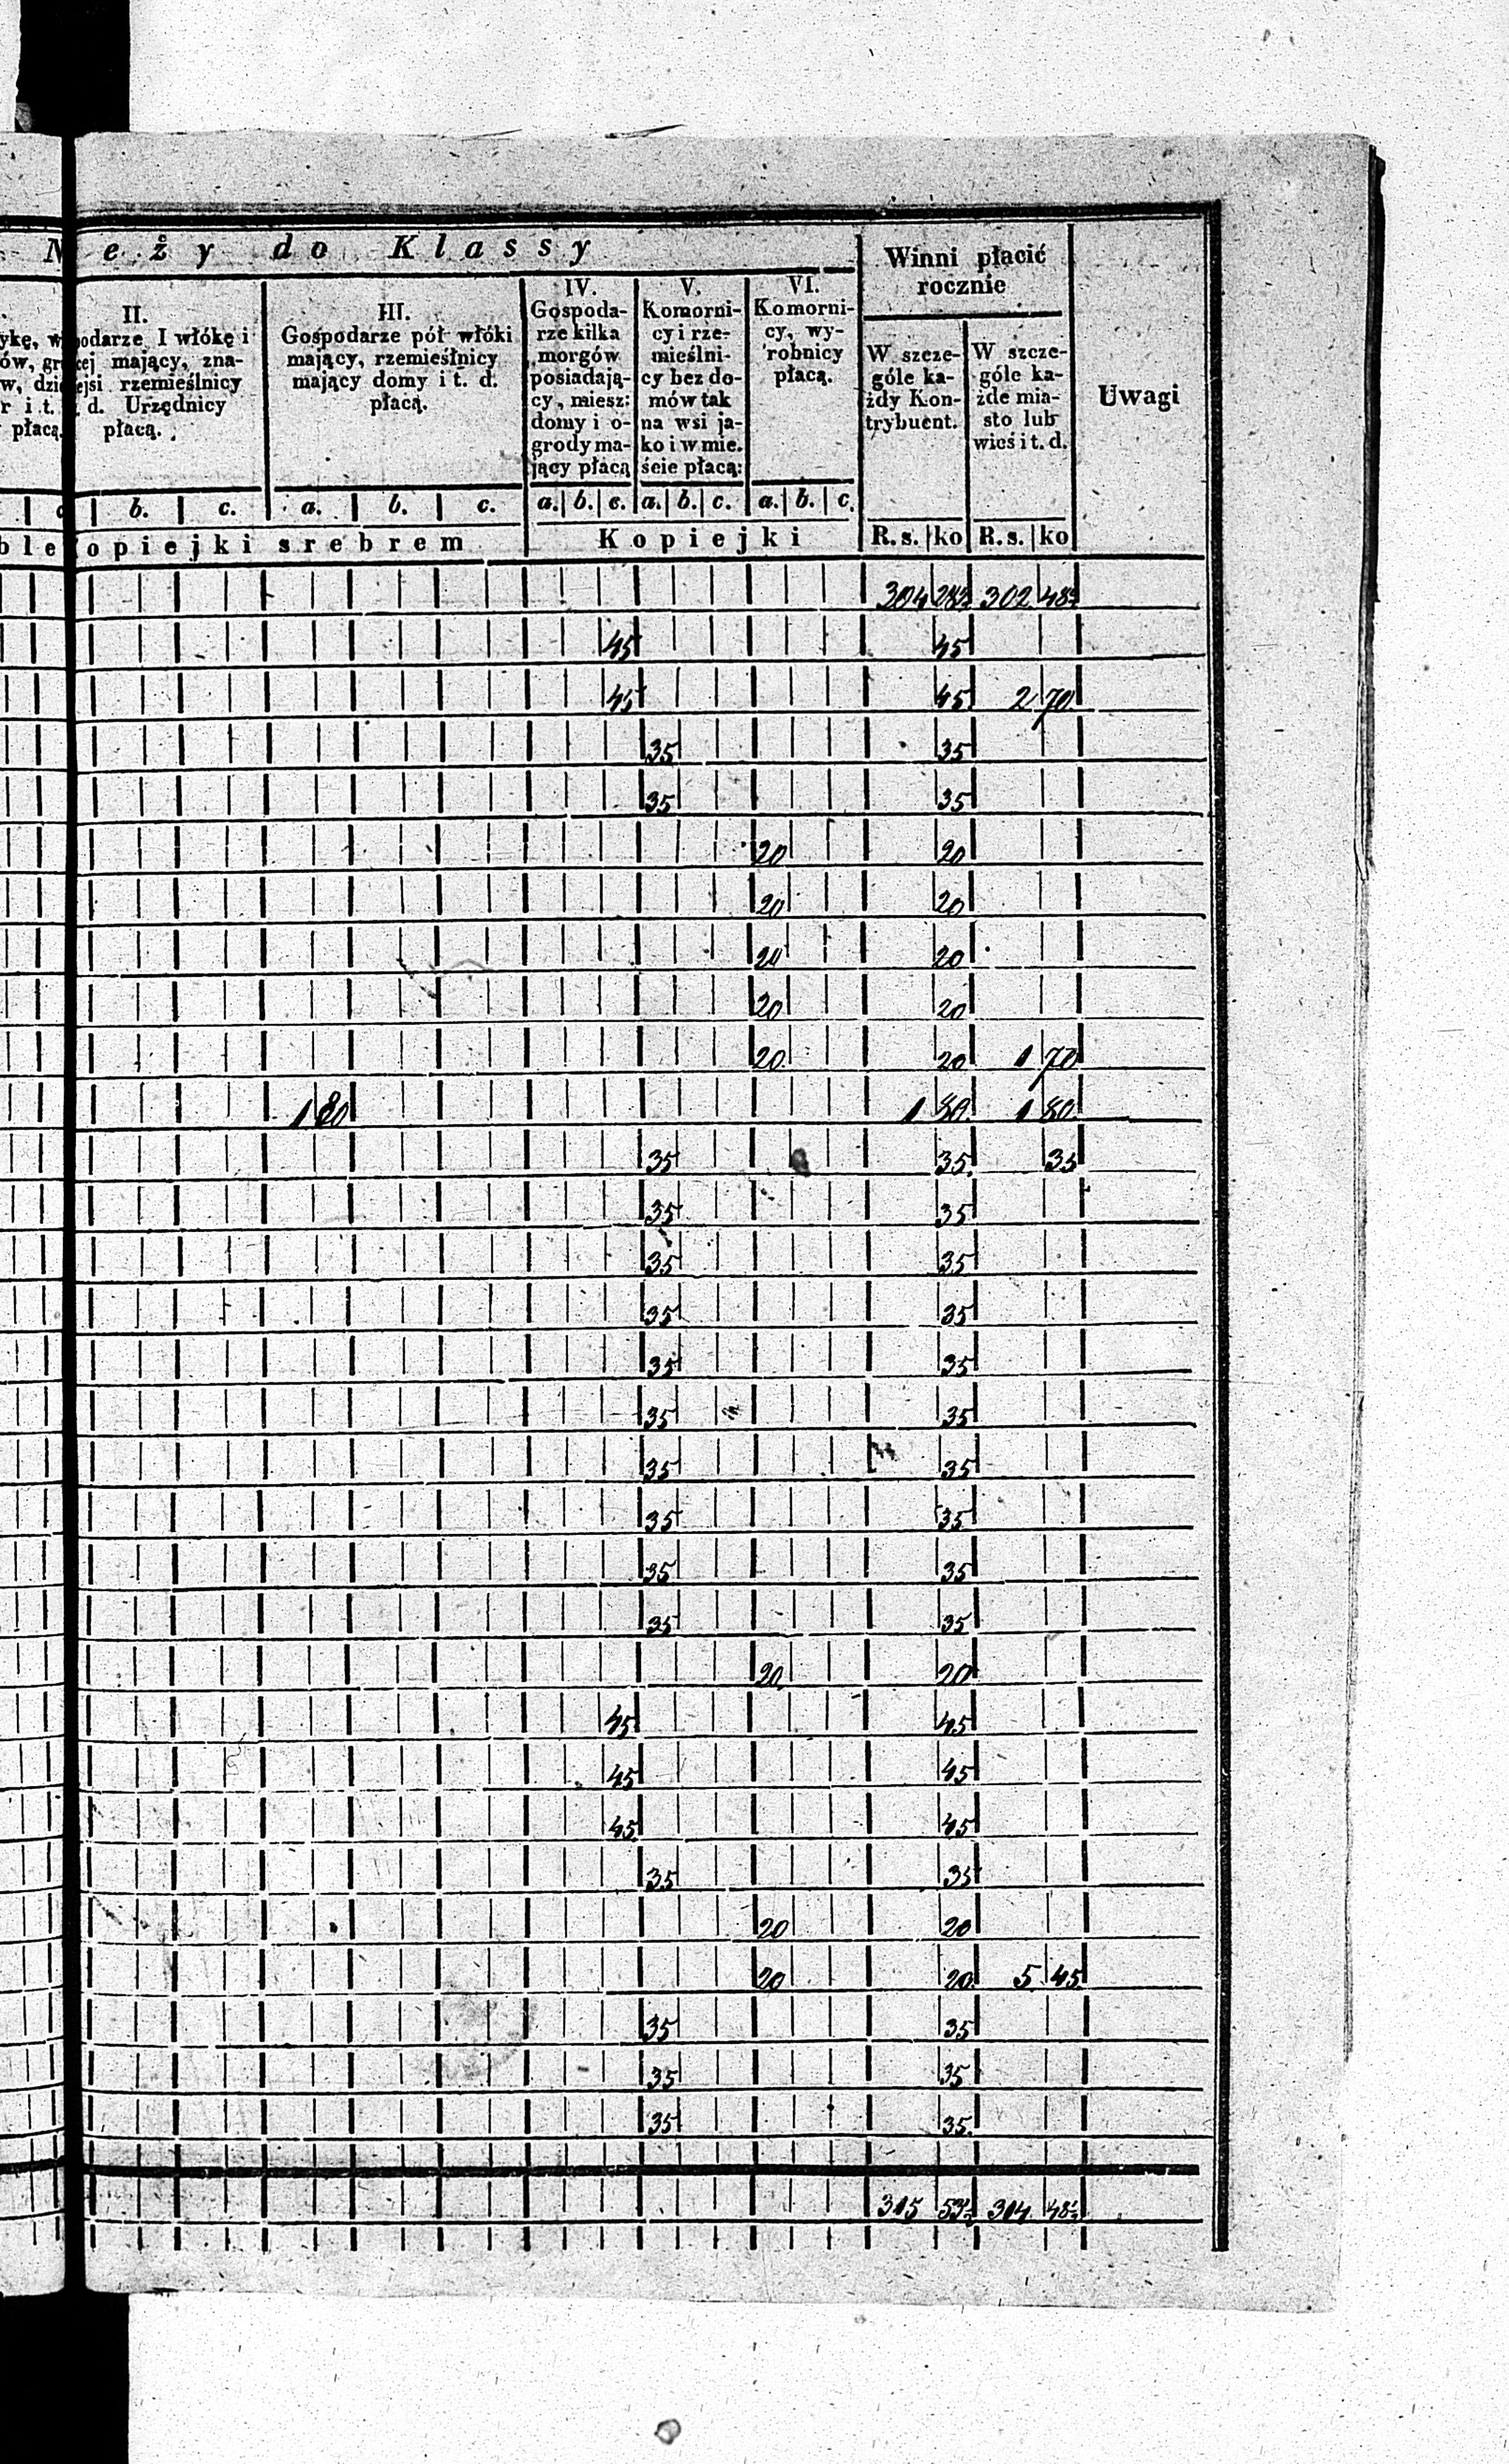 e ż y do K l a s s y
Winni płacić
rocznie
Uwagi
II.
odarze I włókę i
cej mający, zna-
ejsi rzemieślnicy
d. Urzędnicy
płacą.
III.
Gospodarze pół włóki
mający, rzemieślnicy
mający domy i t. d.
płacą.
IV.
Gospoda-
rze kilka
morgów
posiadają-
cy, miesz:
domy i o-
grody ma-
jący płacą
V.
Komorni-
cy i rze-
mieślni-
cy bez do-
mów tak
na wsi ja-
ko i w mie.
ście płacą:
VI.
Komorni-
cy, wy-
robnicy
płacą.
W szcze-
góle ka-
żdy Kon-
trybuent.
W szcze-
góle ka-
żde mia-
sto lub
wieś i t. d.
b. c. a. b. c. a. b. c. a. b. c. a. b. c.
opiejki srebrem Kopiejki R.s. ko R.s. ko
304 28½ 302 48½
45 45
45 45 2 70
35 35
35 35
20 20
20 20
20 20
20 20
20 20 1 70
1 80 1 80 1 80
35 35 35
35 35
35 35
35 35
35 35
35 35
35 35
35 35
35 35
35 35
20 20
45 45
45 45
45 45
35 35
20 20
20 20 5 45
35 35
35 35
35 35
315 53½ 314 48½